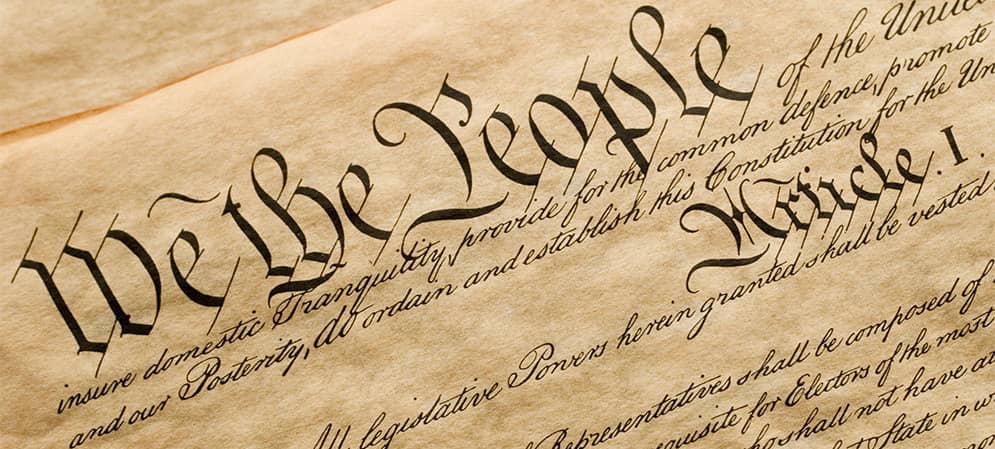 We the People of the United
insure domestic Tranquility, provide for the common defence, promote
and our Posterity, do ordain and establish this Constitution for the Un
Article. I.
All legislative Powers herein granted shall be vested
Representatives shall be composed of
quisite for Electors of the most
ho shall not have at
t State in w